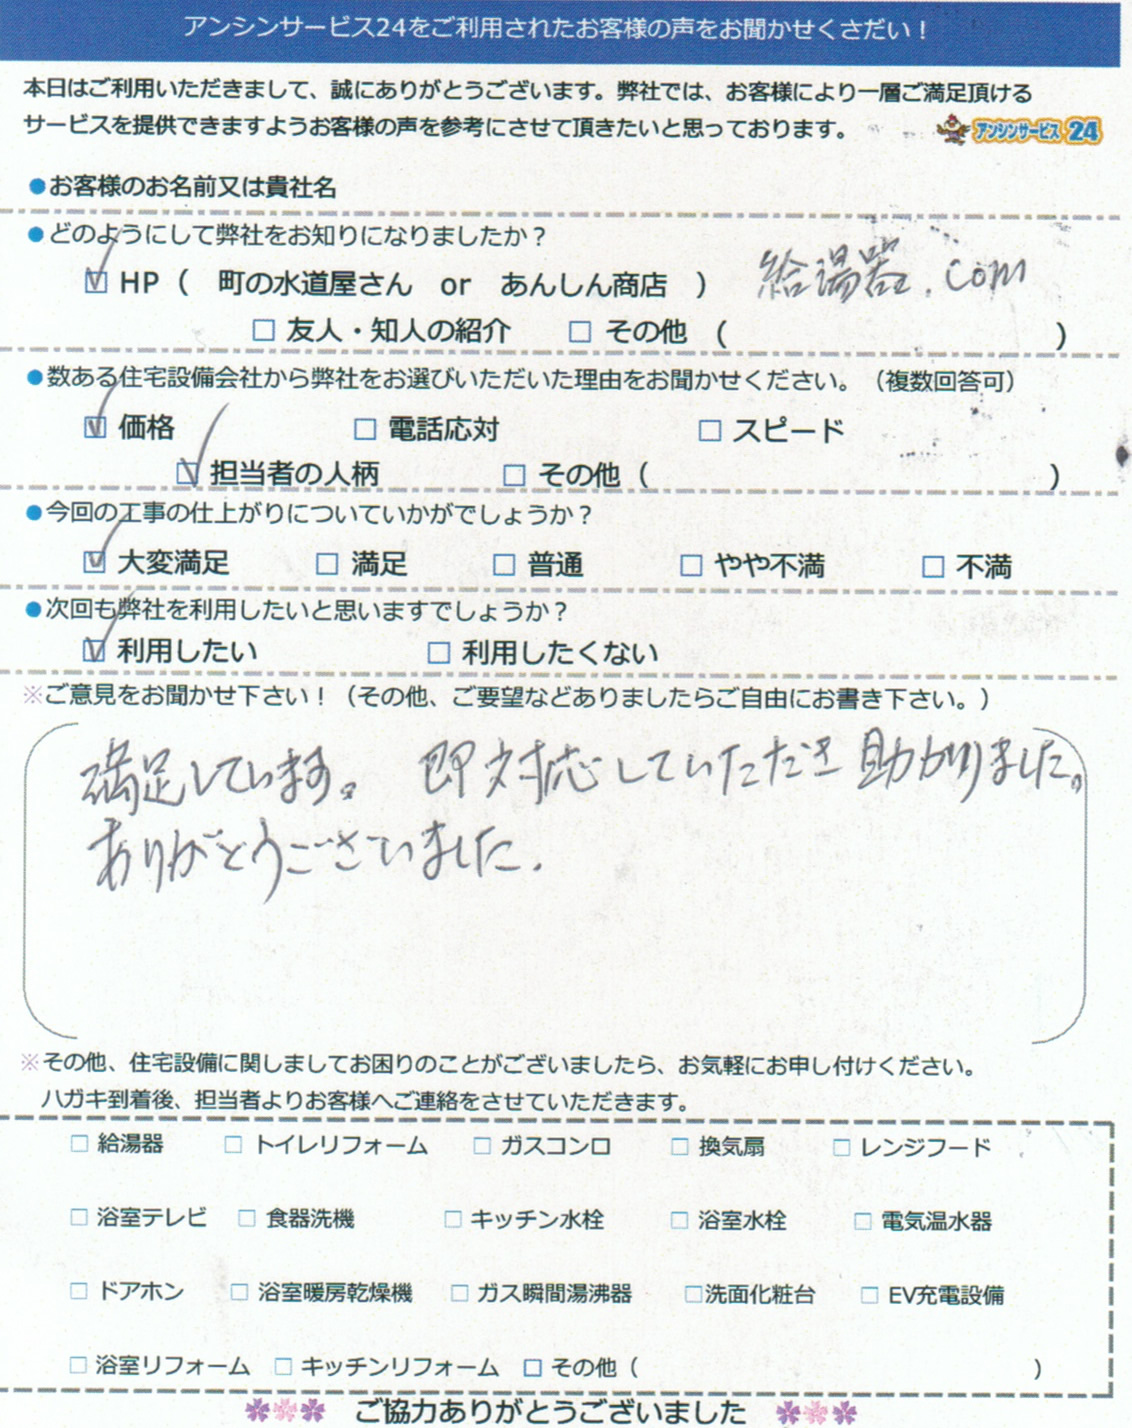 アンシンサービス24をご利用されたお客様の声をお聞かせくさだい！
本日はご利用いただきまして、誠にありがとうございます。弊社では、お客様により一層ご満足頂ける
サービスを提供できますようお客様の声を参考にさせて頂きたいと思っております。
アンシンサービス24
●お客様のお名前又は貴社名
●どのようにして弊社をお知りになりましたか？
☑ HP（　町の水道屋さん　or　あんしん商店　） 給湯器.com
□ 友人・知人の紹介　□ その他　（　　　）
●数ある住宅設備会社から弊社をお選びいただいた理由をお聞かせください。（複数回答可）
☑ 価格　□ 電話応対　□ スピード
☑ 担当者の人柄　□ その他（　　　）
●今回の工事の仕上がりについていかがでしょうか？
☑ 大変満足　□ 満足　□ 普通　□ やや不満　□ 不満
●次回も弊社を利用したいと思いますでしょうか？
☑ 利用したい　□ 利用したくない
※ご意見をお聞かせ下さい！（その他、ご要望などありましたらご自由にお書き下さい。）
満足しています。 即対応していただき助かりました。
ありがとうございました.
※その他、住宅設備に関しましてお困りのことがございましたら、お気軽にお申し付けください。
ハガキ到着後、担当者よりお客様へご連絡をさせていただきます。
□ 給湯器　□ トイレリフォーム　□ ガスコンロ　□ 換気扇　□ レンジフード
□ 浴室テレビ　□ 食器洗機　□ キッチン水栓　□ 浴室水栓　□ 電気温水器
□ ドアホン　□ 浴室暖房乾燥機　□ ガス瞬間湯沸器　□洗面化粧台　□ EV充電設備
□ 浴室リフォーム　□ キッチンリフォーム　□ その他（　　　）
ご協力ありがとうございました